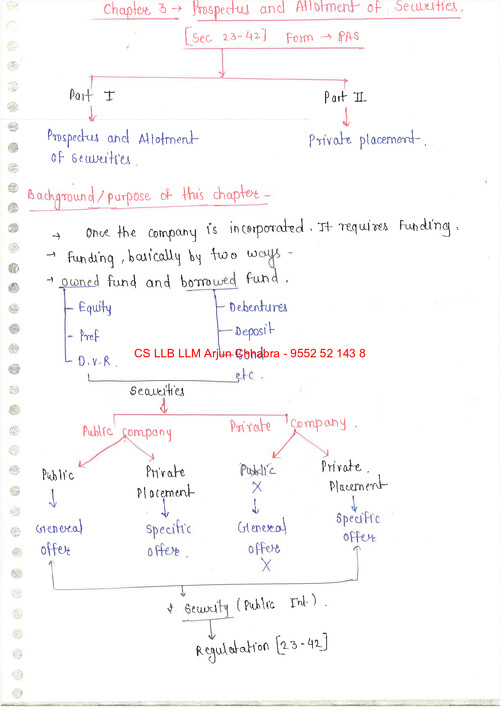 Chapter 3 → Prospectus and Allotment of Securities.
[Sec 23-42] Form → PAS
Part I
Part II
Prospectus and Allotment of Securities.
Private placement.
Background/purpose of this chapter -
→ Once the company is incorporated. It requires Funding.
→ Funding, basically by two ways -
→ owned fund and borrowed fund.
Equity
Debentures
Pref
Deposit
D.V.R.
CS LLB LLM Arjun Chhabra - 9552 52 143 8
etc.
Securities
Public company
Private company.
Public
Private Placement
Public
X
Private. Placement
General offer
Specific offer.
General offer
X
Specific offer
Security (Public Int).
Regulatation [23-42]